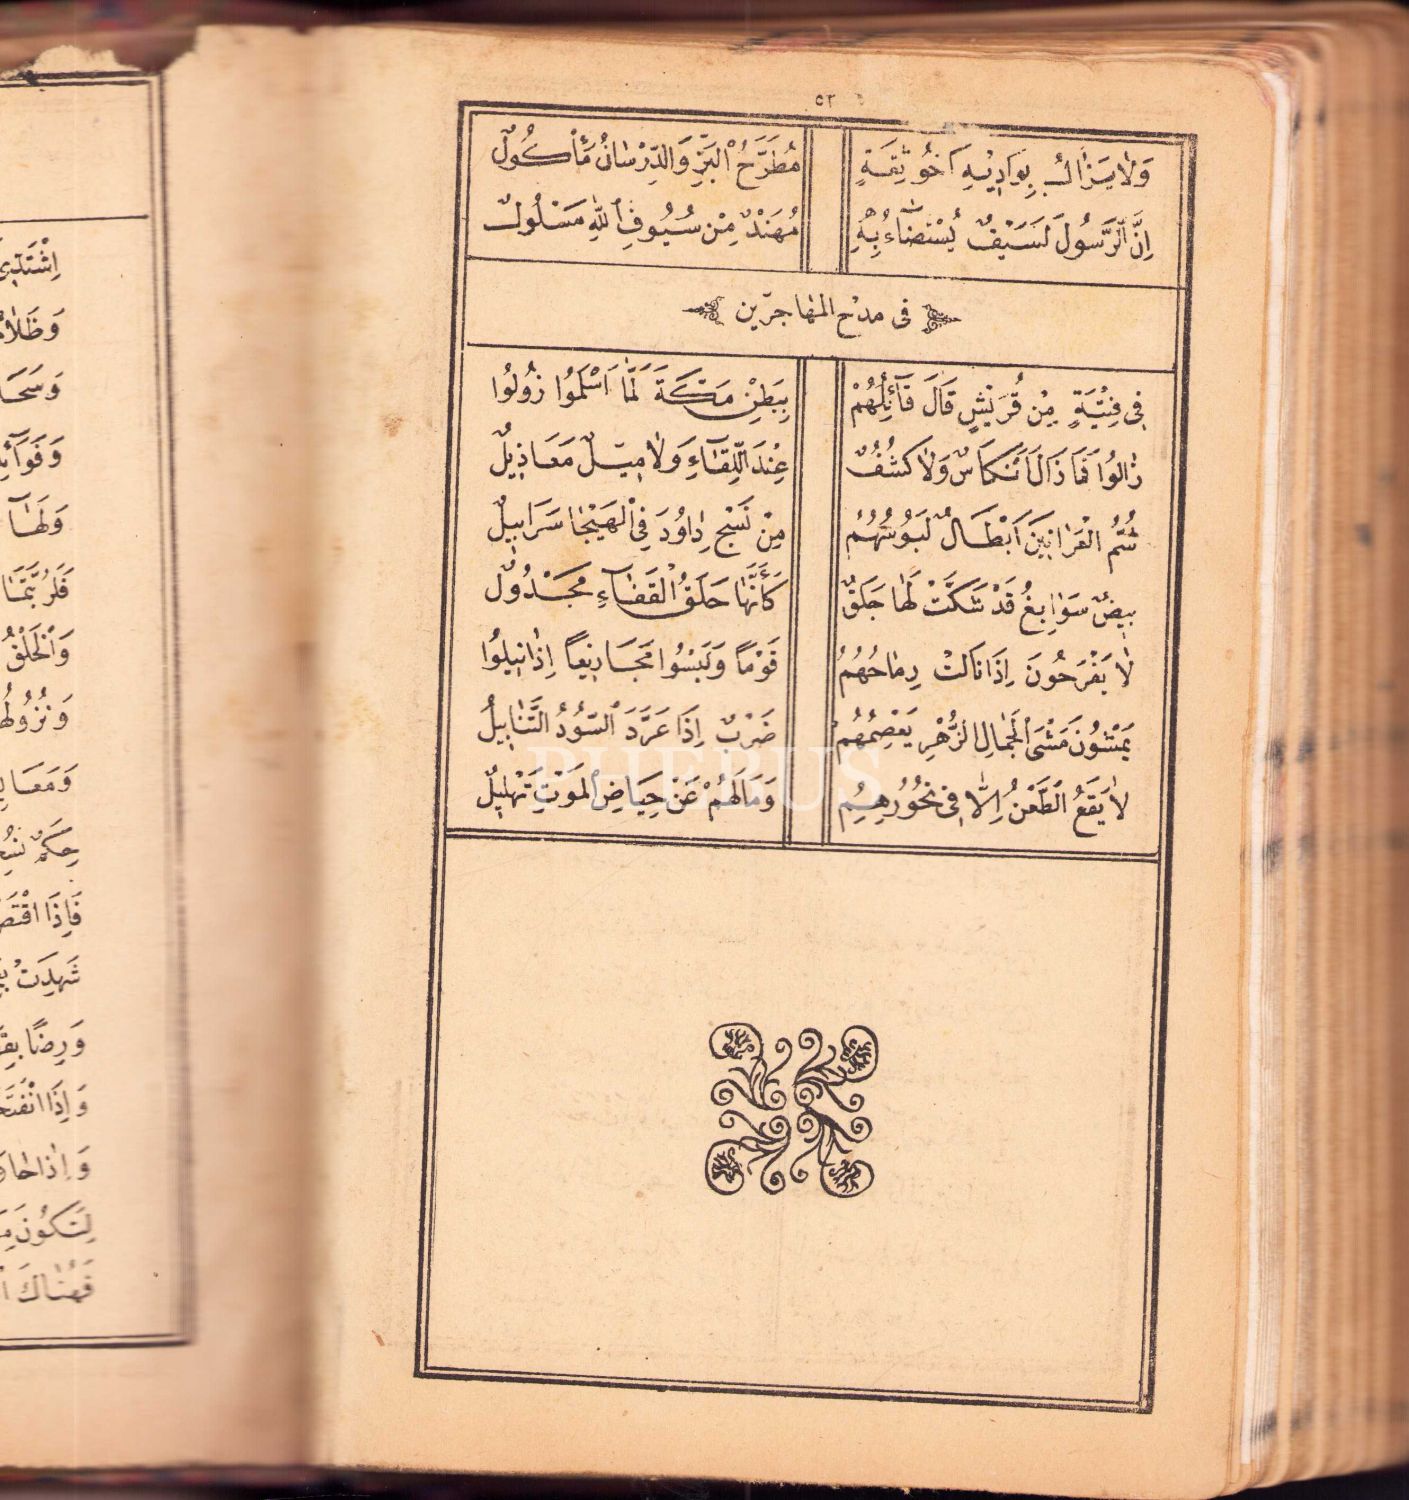 ٥٢
وَلَا يَزَالُ بِوَادِيهِ أَخُو ثِقَةٍ مُطَرَّحُ الْبَزِّ وَالدِّرْسَانُ مَأْكُولٌ
إِنَّ الرَّسُولَ لَسَيْفٌ يُسْتَضَاءُ بِهِ مُهَنْدٌ مِنْ سُيُوفِ اللهِ مَسْلُولٌ
فى مدح المهاجرين
فِى فِتْيَةٍ مِنْ قُرَيْشٍ قَالَ قَآئِلُهُمْ بِبَطْنِ مَكَّةَ لَمَّا أَسْلَمُوا زُولُوا
زَالُوا فَمَا زَالَ أَنْكَاسٌ وَلَا كُشُفٌ عِنْدَ اللِّقَآءِ وَلَا مِيلٌ مَعَازِيلٌ
شُمُّ الْعَرَانِينَ أَبْطَالٌ لَبُوسُهُمُ مِنْ نَسْجِ دَاوُدَ فِى الْهَيْجَا سَرَابِيلٌ
بِيضٌ سَوَابِغُ قَدْ شَكَّتْ لَهَا حَلَقٌ كَأَنَّهَا حَلَقُ الْقَفْعَآءِ مَجْدُولٌ
لَا يَفْرَحُونَ إِذَا نَالَتْ رِمَاحُهُمُ قَوْمًا وَلَيْسُوا مَجَازِيعًا إِذَا نِيلُوا
يَمْشُونَ مَشْىَ الْجِمَالِ الزُّهْرِ يَعْصِمُهُمْ ضَرْبٌ إِذَا عَرَّدَ السُّودُ التَّنَابِيلُ
لَا يَقَعُ الطَّعْنُ إِلَّا فِى نُحُورِهِمِ وَمَا لَهُمْ عَنْ حِيَاضِ الْمَوْتِ تَهْلِيلٌ
PHEBUS
وَظَلَامُ
وَلَهَآ
فَلَرُبَّمَا
وَالْخَلْقُ
فَإِذَا
شَهِدَتْ
وَرِضًا
لِتَكُونَ
فَهُنَاكَ